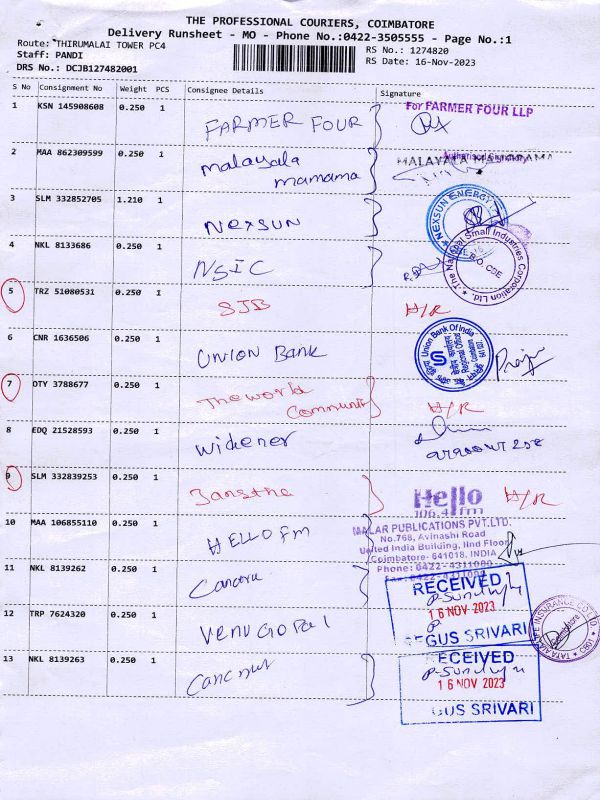 THE PROFESSIONAL COURIERS, COIMBATORE
Delivery Runsheet - MO - Phone No.:0422-3505555 - Page No.:1
Route: THIRUMALAI TOWER PC4
RS No.: 1274820
Staff: PANDI
RS Date: 16-Nov-2023
DRS No.: DCJB127482001
S No Consignment No Weight PCS Consignee Details Signature
1 KSN 145908608 0.250 1 FARMER FOUR For FARMER FOUR LLP
2 MAA 862309599 0.250 1 malayala mamama MALAYALA
Authorised Signatory
3 SLM 332852705 1.210 1 NEXSUN NEXSUN ENERGY
4 NKL 8133686 0.250 1 NSIC The National Small Industries Corporation Ltd.
5 TRZ 51080531 0.250 1 SJB H/R
6 CNR 1636506 0.250 1 UNION BANK Union Bank Of India
7 OTY 3788677 0.250 1 The world Community H/R
8 EDQ 21528593 0.250 1 Widener
9 SLM 332839253 0.250 1 H/R
Hello
106.4 fm
10 MAA 106855110 0.250 1 HELLO FM
MALAR PUBLICATIONS PVT.LTD.
No.768, Avinashi Road
United India Building, IInd Floor
Coimbatore- 641018, INDIA
Phone: 0422-4311000
11 NKL 8139262 0.250 1
RECEIVED
16 NOV 2023
REGUS SRIVARI
TATA AIA LIFE INSURANCE CO. LTD.
12 TRP 7624320 0.250 1 VENUGOPAL
13 NKL 8139263 0.250 1
RECEIVED
16 NOV 2023
REGUS SRIVARI